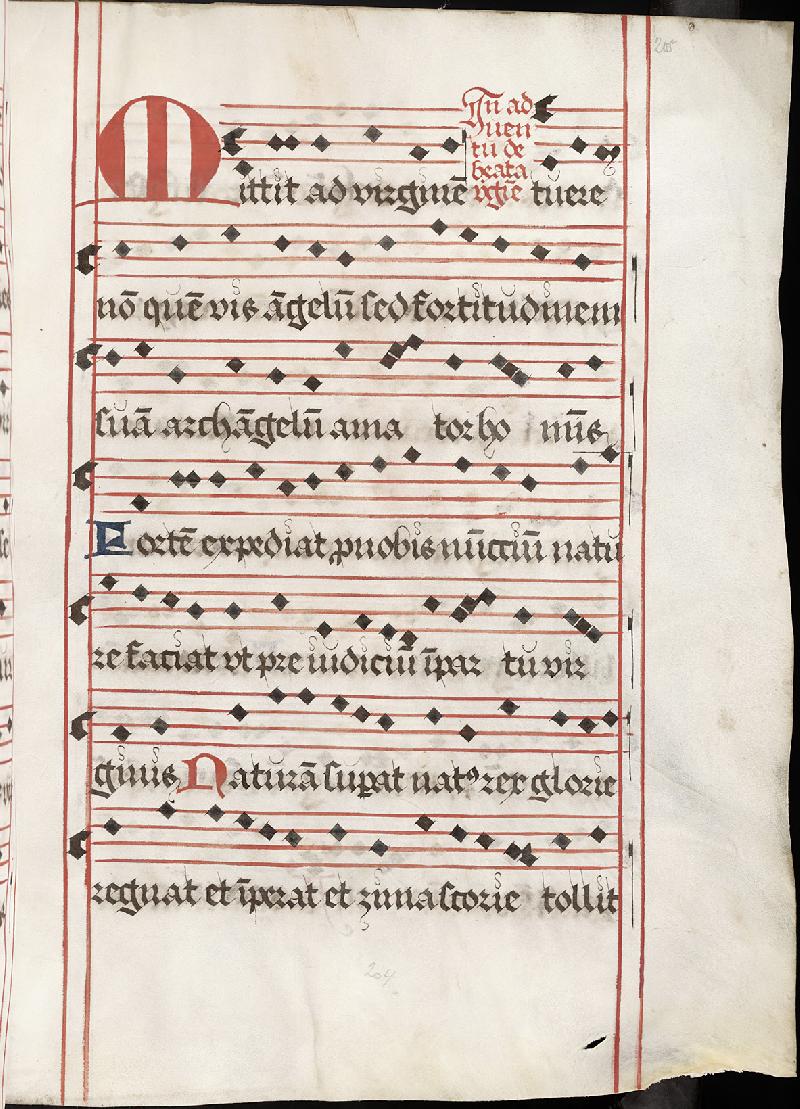 205
In ad
uen
tu de
beata
v̄gīe
Mittit ad virginē tuere
nō quē vis āgelū sed fortitudinem
suā archāgelū ama torho mīs
Fortē expediat ꝓ nobis nūcciū natu
re faciat vt pre iudiciū īpar tu vir
ginis Naturā suꝑat natꝰ rex glorie
regnat et īperat et zima scorie tollit
204